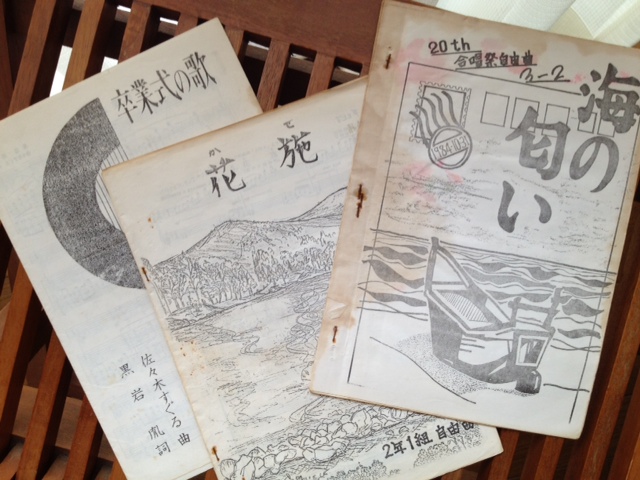 卒業式の歌
佐々木すぐる 曲
黒岩 胤 詞
か ど
花 施
2年1組 自由曲
20th
合唱祭自由曲
3-2
海の
匂い